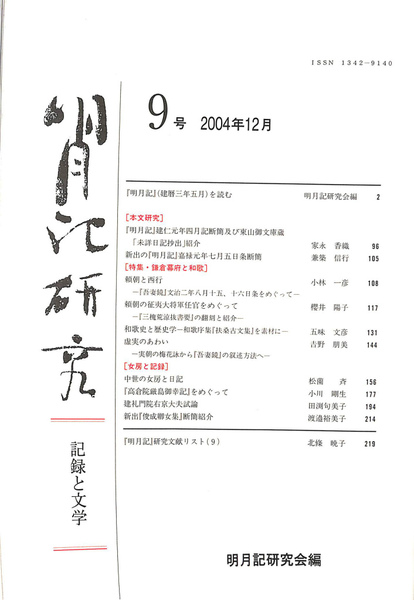 ISSN 1342-9140
明月記研究
記録と文学
9号 2004年12月
『明月記』(建暦三年五月)を読む 明月記研究会編 2
[本文研究]
『明月記』建仁元年四月記断簡及び東山御文庫蔵
「未詳日記抄出」紹介 家永 香織 96
新出の『明月記』嘉禄元年七月五日条断簡 兼築 信行 105
[特集・鎌倉幕府と和歌]
頼朝と西行 小林 一彦 108
―『吾妻鏡』文治二年八月十五、十六日条をめぐって―
頼朝の征夷大将軍任官をめぐって 櫻井 陽子 117
―『三槐荒涼抜書要』の翻刻と紹介―
和歌史と歴史学―和歌序集『扶桑古文集』を素材に― 五味 文彦 131
虚実のあわい 吉野 朋美 144
―実朝の梅花詠から『吾妻鏡』の叙述方法へ―
[女房と記録]
中世の女房と日記 松薗 斉 156
『高倉院厳島御幸記』をめぐって 小川 剛生 177
建礼門院右京大夫試論 田渕句美子 194
新出『俊成卿女集』断簡紹介 渡邉裕美子 214
『明月記』研究文献リスト(9) 北條 暁子 219
明月記研究会編